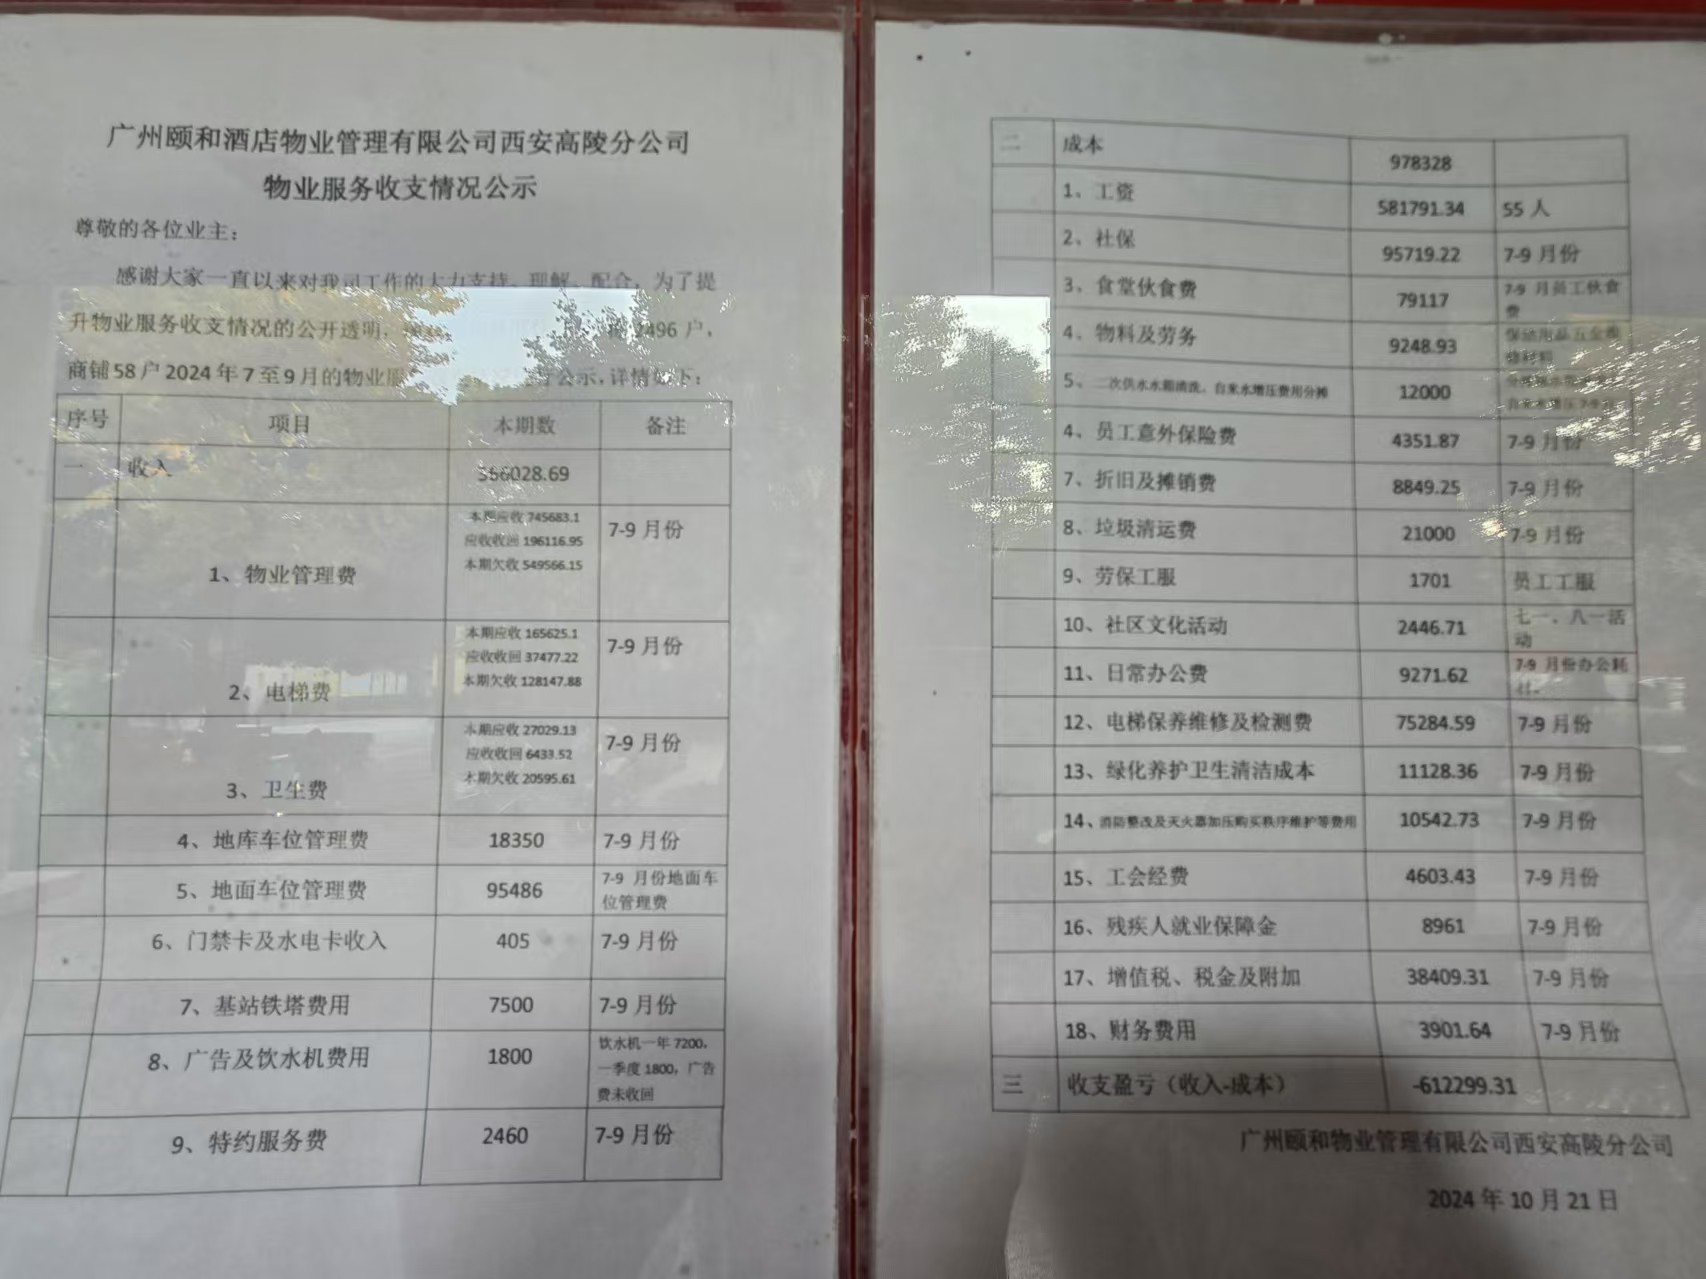 广州颐和酒店物业管理有限公司西安高陵分公司
物业服务收支情况公示
尊敬的各位业主：
感谢大家一直以来对我司工作的大力支持、理解、配合，为了提
升物业服务收支情况的公开透明， 2496户，
商铺58户2024年7至9月的物业服 公示，详情如下：
序号 项目 本期数 备注
一 收入 366028.69
1、物业管理费 本期应收745683.1 应收收回196116.95 本期欠收549566.15 7-9月份
2、电梯费 本期应收165625.1 应收收回37477.22 本期欠收128147.88 7-9月份
3、卫生费 本期应收27029.13 应收收回6433.52 本期欠收20595.61 7-9月份
4、地库车位管理费 18350 7-9月份
5、地面车位管理费 95486 7-9 月份地面车位管理费
6、门禁卡及水电卡收入 405 7-9月份
7、基站铁塔费用 7500 7-9月份
8、广告及饮水机费用 1800 饮水机一年7200，一季度1800，广告费未收回
9、特约服务费 2460 7-9月份
二 成本 978328
1、工资 581791.34 55人
2、社保 95719.22 7-9月份
3、食堂伙食费 79117 7-9 月员工伙食费
4、物料及劳务 9248.93
5、二次供水水箱清洗、自来水增压费用分摊 12000
4、员工意外保险费 4351.87 7-9月份
7、折旧及摊销费 8849.25 7-9月份
8、垃圾清运费 21000 7-9月份
9、劳保工服 1701 员工工服
10、社区文化活动 2446.71 七一、八一活动
11、日常办公费 9271.62 7-9 月份办公耗材。
12、电梯保养维修及检测费 75284.59 7-9月份
13、绿化养护卫生清洁成本 11128.36 7-9月份
14、消防整改及灭火器加压购买秩序维护等费用 10542.73 7-9月份
15、工会经费 4603.43 7-9月份
16、残疾人就业保障金 8961 7-9月份
17、增值税、税金及附加 38409.31 7-9月份
18、财务费用 3901.64 7-9月份
三 收支盈亏（收入-成本） -612299.31
广州颐和物业管理有限公司西安高陵分公司
2024年10月21日